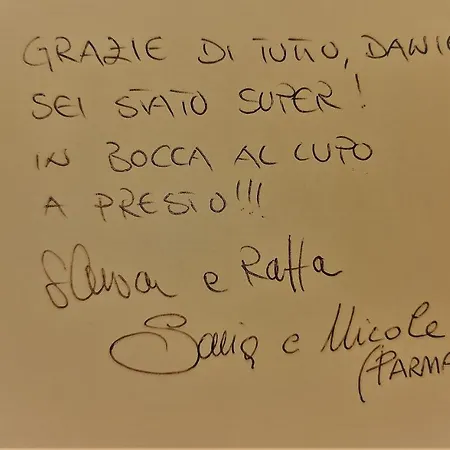 GRAZIE DI TUTTO, DANIE
SEI STATO SUPER!
IN BOCCA AL LUPO
A PRESTO!!!
e Raffa
e Nicole
(PARMA